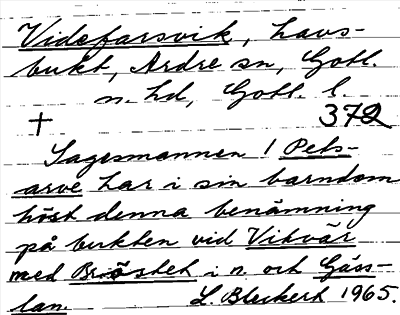 Videfarsvik, havs-
bukt, Ardre sn, Gotl.
n. hd, Gotl. l.
† 372
Sagesmannen i Pets-
arve har i sin barndom
höst denna benämning
på bukten vid Vitvär
med Bröstet i n. och Gäss-
lan. L. Bleckert 1965.